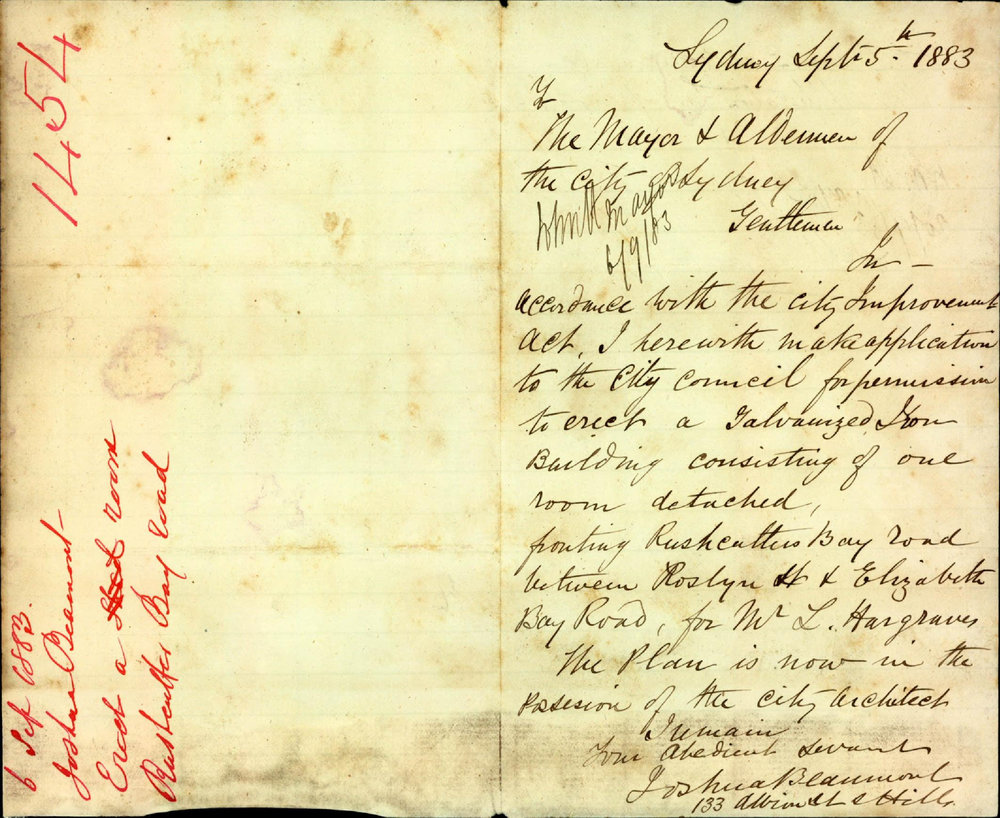 1454
6 Sep 1883.
Joshua Beaumont
Erect a room
Rushcutters Bay road
Sydney Sept 5th 1883
To
The Mayor & Aldermen of
the city of Sydney
6/9/83
Gentlemen
In
accordance with the city Improvement
Act, I herewith make application
to the City council for permission
to erect a Galvanized Iron
Building consisting of one
room detached,
fronting Rushcutters Bay road
between Roslyn St & Elizabeth
Bay Road, for Mr L. Hargraves
The Plan is now in the
possesion of the city architect
I remain
Your Obedient servant
Joshua Beaumont
133 Albion St S Hills